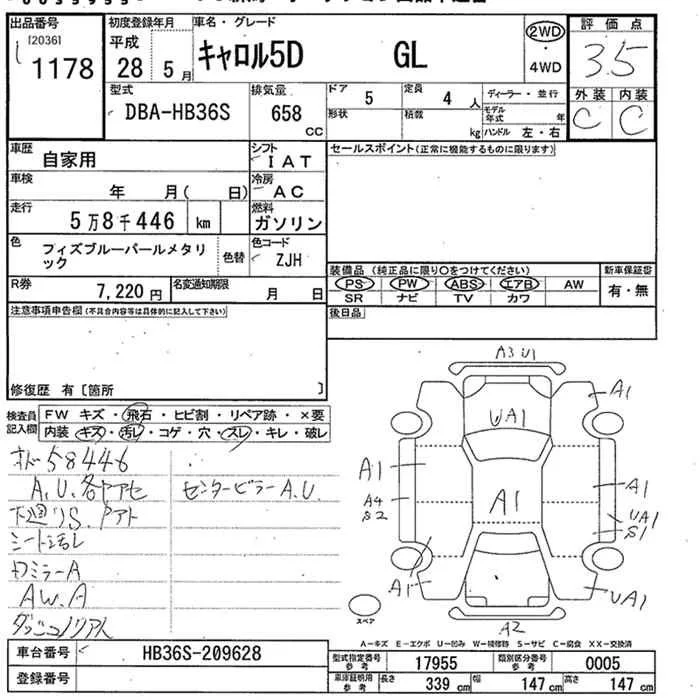 出品番号
[20361]
1178
初度登録年月
平成
28 5月
車名・グレード
キャロル5D GL
2WD
・
4WD
評価点
3.5
外装 内装
C C
型式
DBA-HB36S
排気量
658
CC
ドア 5
定員 4 人
ディーラー・並行
形状
積載
kg
モデル年式 年
ハンドル 左・右
車歴 自家用
シフト
IAT
セールスポイント(正常に機能するものに限ります)
車検
年 月( 日)
冷房
AC
走行
5万8千446 km
燃料
ガソリン
色
フィズブルーパールメタリック
色替
色コード
ZJH
装備品 (純正品に限り〇をつけてください)
新車保証書
PS PW ABS エアB AW
SR ナビ TV カワ
有・無
R券 7,220 円
名変通知期限
月 日
後日品
注意事項申告欄(不具合内容等は具体的に記入して下さい)
修復歴 有 [箇所 ]
検査員記入欄
FW キズ・飛石・ヒビ割・リペア跡・×要
内装・キズ・汚レ・コゲ・穴・スレ・キレ・破レ
オド58446
A.U.各ヤアセ センターピラーA.U.
下廻りS.Pアト
シート汚レ
ロミラーA
AW.A
ダッシュノリアト
A3 U1
A1
UA1
A1
A1
A1
A4
S2
UA1
S1
A1
UA1
A2
スペア
A-キズ E-エクボ U-凹み W-補修跡 S-サビ C-腐食 XX-交換済
車台番号 HB36S-209628
登録番号
型式指定番号 参考 17955
類別区分番号 参考 0005
車庫証明用 参考
長さ 339 cm
幅 147 cm
高さ 147 cm